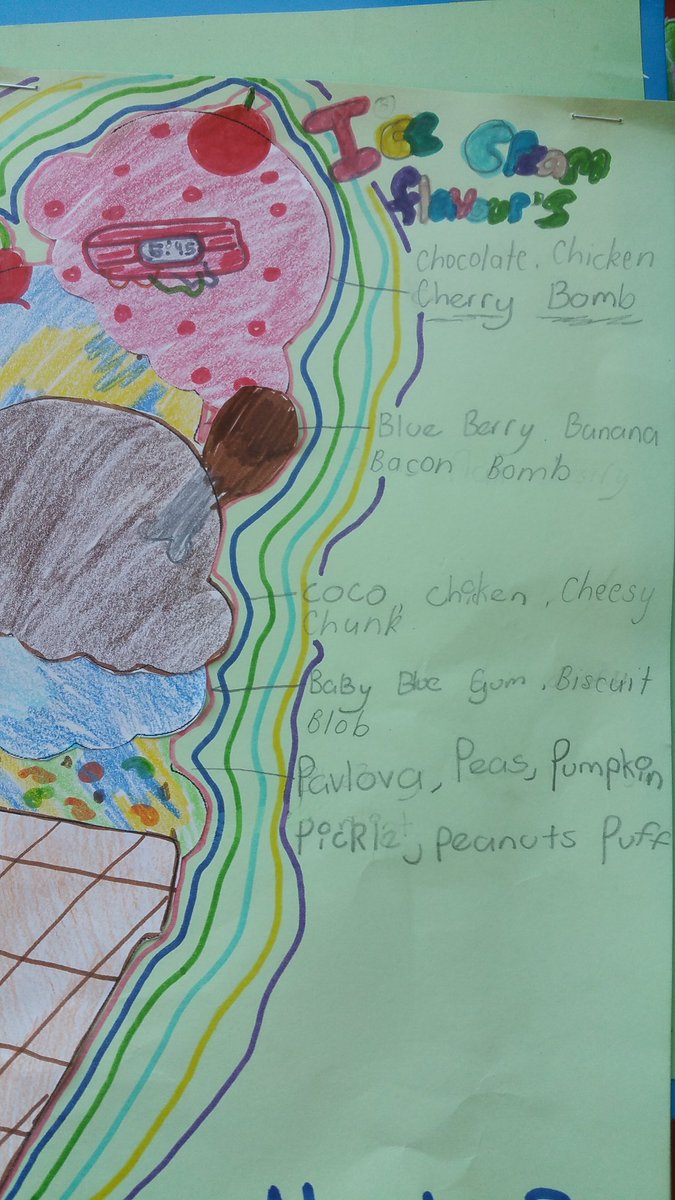 Ice Cream
flavour's
Chocolate. Chicken
Cherry Bomb
5:45
Blue Berry. Banana
Bacon Bomb
Coco, chicken, Cheesy
Chunk
Baby Blue Gum, Biscuit
Blob
Pavlova, Peas, Pumpkin
Pickle, peanuts Puff